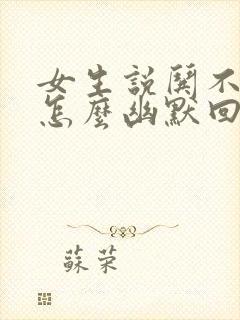 女生説関不
怎麼幽默回
蘇荣